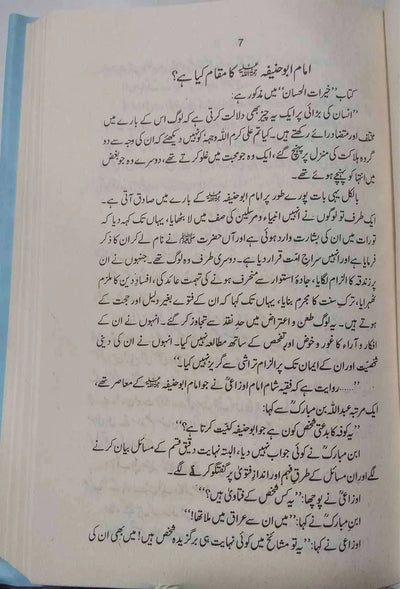 7
امام ابو حنیفہ ﷫ کا مقام کیا ہے؟
کتاب "خیرات الحسان" میں مذکور ہے:
"انسان کی بڑائی پر ایک یہ چیز بھی دلالت کرتی ہے کہ لوگ اس کے بارے میں
مختلف اور متضاد رائے رکھتے ہیں۔ کیا تم علی کرم اللہ وجہہ کو نہیں دیکھتے کہ ان کی وجہ سے دو
گروہ ہلاکت کی منزل پر پہنچ گئے، ایک وہ جو محبت میں غلو کرتے تھے، دوسرے وہ جو بغض
میں انتہا کو پہنچے ہوئے تھے۔
بالکل یہی بات پورے طور پر امام ابو حنیفہ ﷫ کے بارے میں صادق آتی ہے۔
ایک طرف تو لوگوں نے انہیں انبیاء و مرسلین کی صف میں لا بٹھایا، یہاں تک کہہ دیا کہ
تورات میں ان کی بشارت وارد ہوئی ہے اور آں حضرت ﷺ نے نام لے کر ان کا ذکر
فرمایا ہے اور انہیں سراج امت قرار دیا ہے۔ دوسری طرف وہ لوگ تھے۔ جنہوں نے ان
پر زندقہ کا الزام لگایا، جادۂ استوار سے منحرف ہونے کی تہمت عائد کی، افساد دین کا ملزم
ٹھہرایا، ترک سنت کا مجرم بنایا، یہاں تک کہا کہ ان کے فتوے بغیر دلیل اور حجت کے
ہوتے ہیں۔ یہ لوگ طعن و اعتراض میں حد نقد سے تجاوز کر گئے۔ انہوں نے ان کے
افکار و آراء کا غور و خوض اور تفحص کے ساتھ مطالعہ نہیں کیا۔ انہوں نے ان کی دینی
شخصیت اور ان کے ایمان تک پر الزام تراشی سے گریز نہیں کیا۔"
"...... روایت ہے کہ فقیہ شام امام اوزاعیؒ نے جو امام ابو حنیفہ ﷫ کے معاصر تھے،
ایک مرتبہ عبداللہ بن مبارکؒ سے کہا:
"یہ کوفہ کا بدعتی شخص کون ہے جو ابو حنیفہ کنیت کرتا ہے؟"
ابن مبارکؒ نے کوئی جواب نہیں دیا، البتہ نہایت دقیق قسم کے مسائل بیان کرنے
لگے اور ان مسائل کے طرق فہم اور انداز فتویٰ پر گفتگو کرنے لگے۔
اوزاعیؒ نے پوچھا: "یہ کس شخص کے فتاویٰ ہیں؟"
ابن مبارکؒ نے کہا: "میں ان سے عراق میں ملا تھا!"
اوزاعیؒ نے کہا: "یہ تو مشائخ میں کوئی نہایت ہی برگزیدہ شخص ہیں! میں بھی ان کی